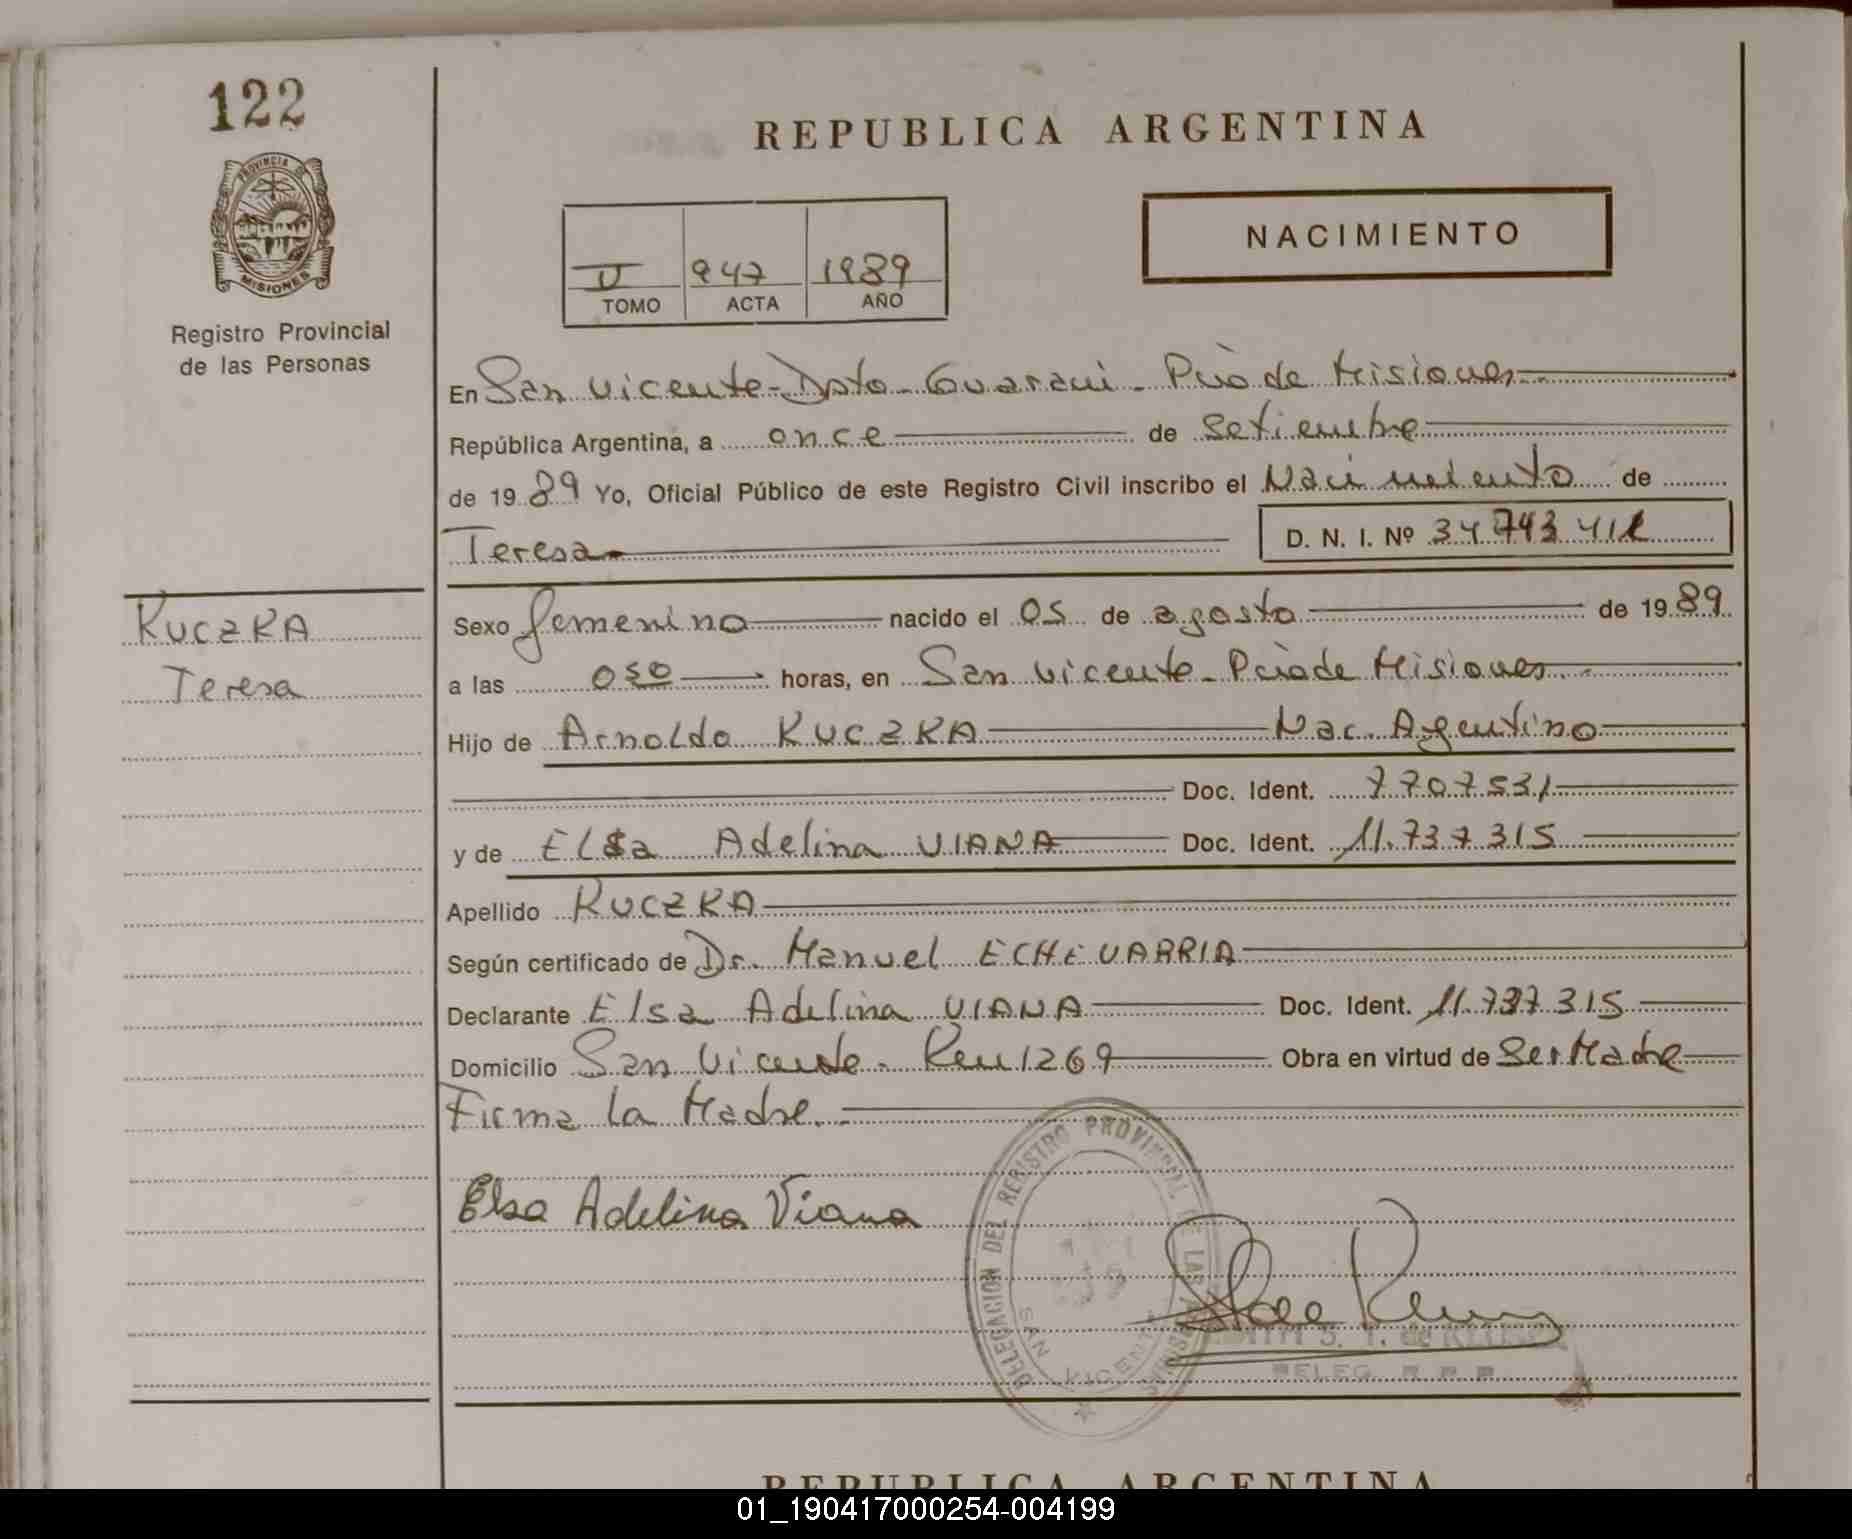 122
PROVINCIA DE
MISIONES
Registro Provincial
de las Personas
REPUBLICA ARGENTINA
NACIMIENTO
V 947 1989
TOMO ACTA AÑO
En San Vicente - Dpto - Guarani - Pcia de Misiones
República Argentina, a once de setiembre
de 1989 Yo, Oficial Público de este Registro Civil inscribo el Nacimiento de
Teresa D. N. I. Nº 34 743
KUCZKA
Teresa
Sexo femenino nacido el 05 de agosto de 1989
a las 050 horas, en San Vicente - Pcia de Misiones
Hijo de Arnoldo KUCZKA Nac. Agentino
Doc. Ident. 7707531
y de Elsa Adelina VIANA Doc. Ident. 11.737315
Apellido KUCZKA
Según certificado de Dr. Manuel ECHEVARRIA
Declarante Elsa Adelina VIANA Doc. Ident. 11.737.315
Domicilio San Vicente - Km 1269 Obra en virtud de Ser Madre
Firma la Madre.
Elsa Adelina Viana
DELEGACION DEL REGISTRO PROVINCIAL DE LAS PERSONAS
SAN VICENTE
DELEG. R. P. P.
REPUBLICA ARGENTINA
01_190417000254-004199